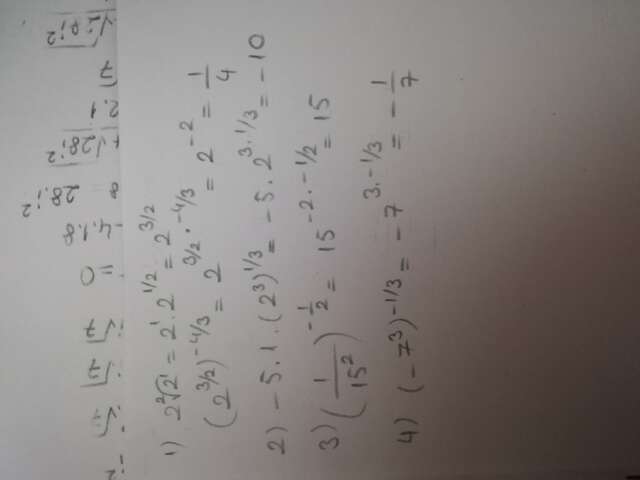 1) 2²√2 = 2¹ · 2^{1/2} = 2^{3/2}
(2^{3/2})^{-4/3} = 2^{3/2 · -4/3} = 2^{-2} = 1/4
2) -5 · 1 · (2³)^{1/3} = -5 · 2^{3 · 1/3} = -10
3) (1/15²)^{-1/2} = 15^{-2 · -1/2} = 15
4) (-7³)^{-1/3} = -7^{3 · -1/3} = -1/7
= 0
-4.1.8
28i²
+√28i²
2.1